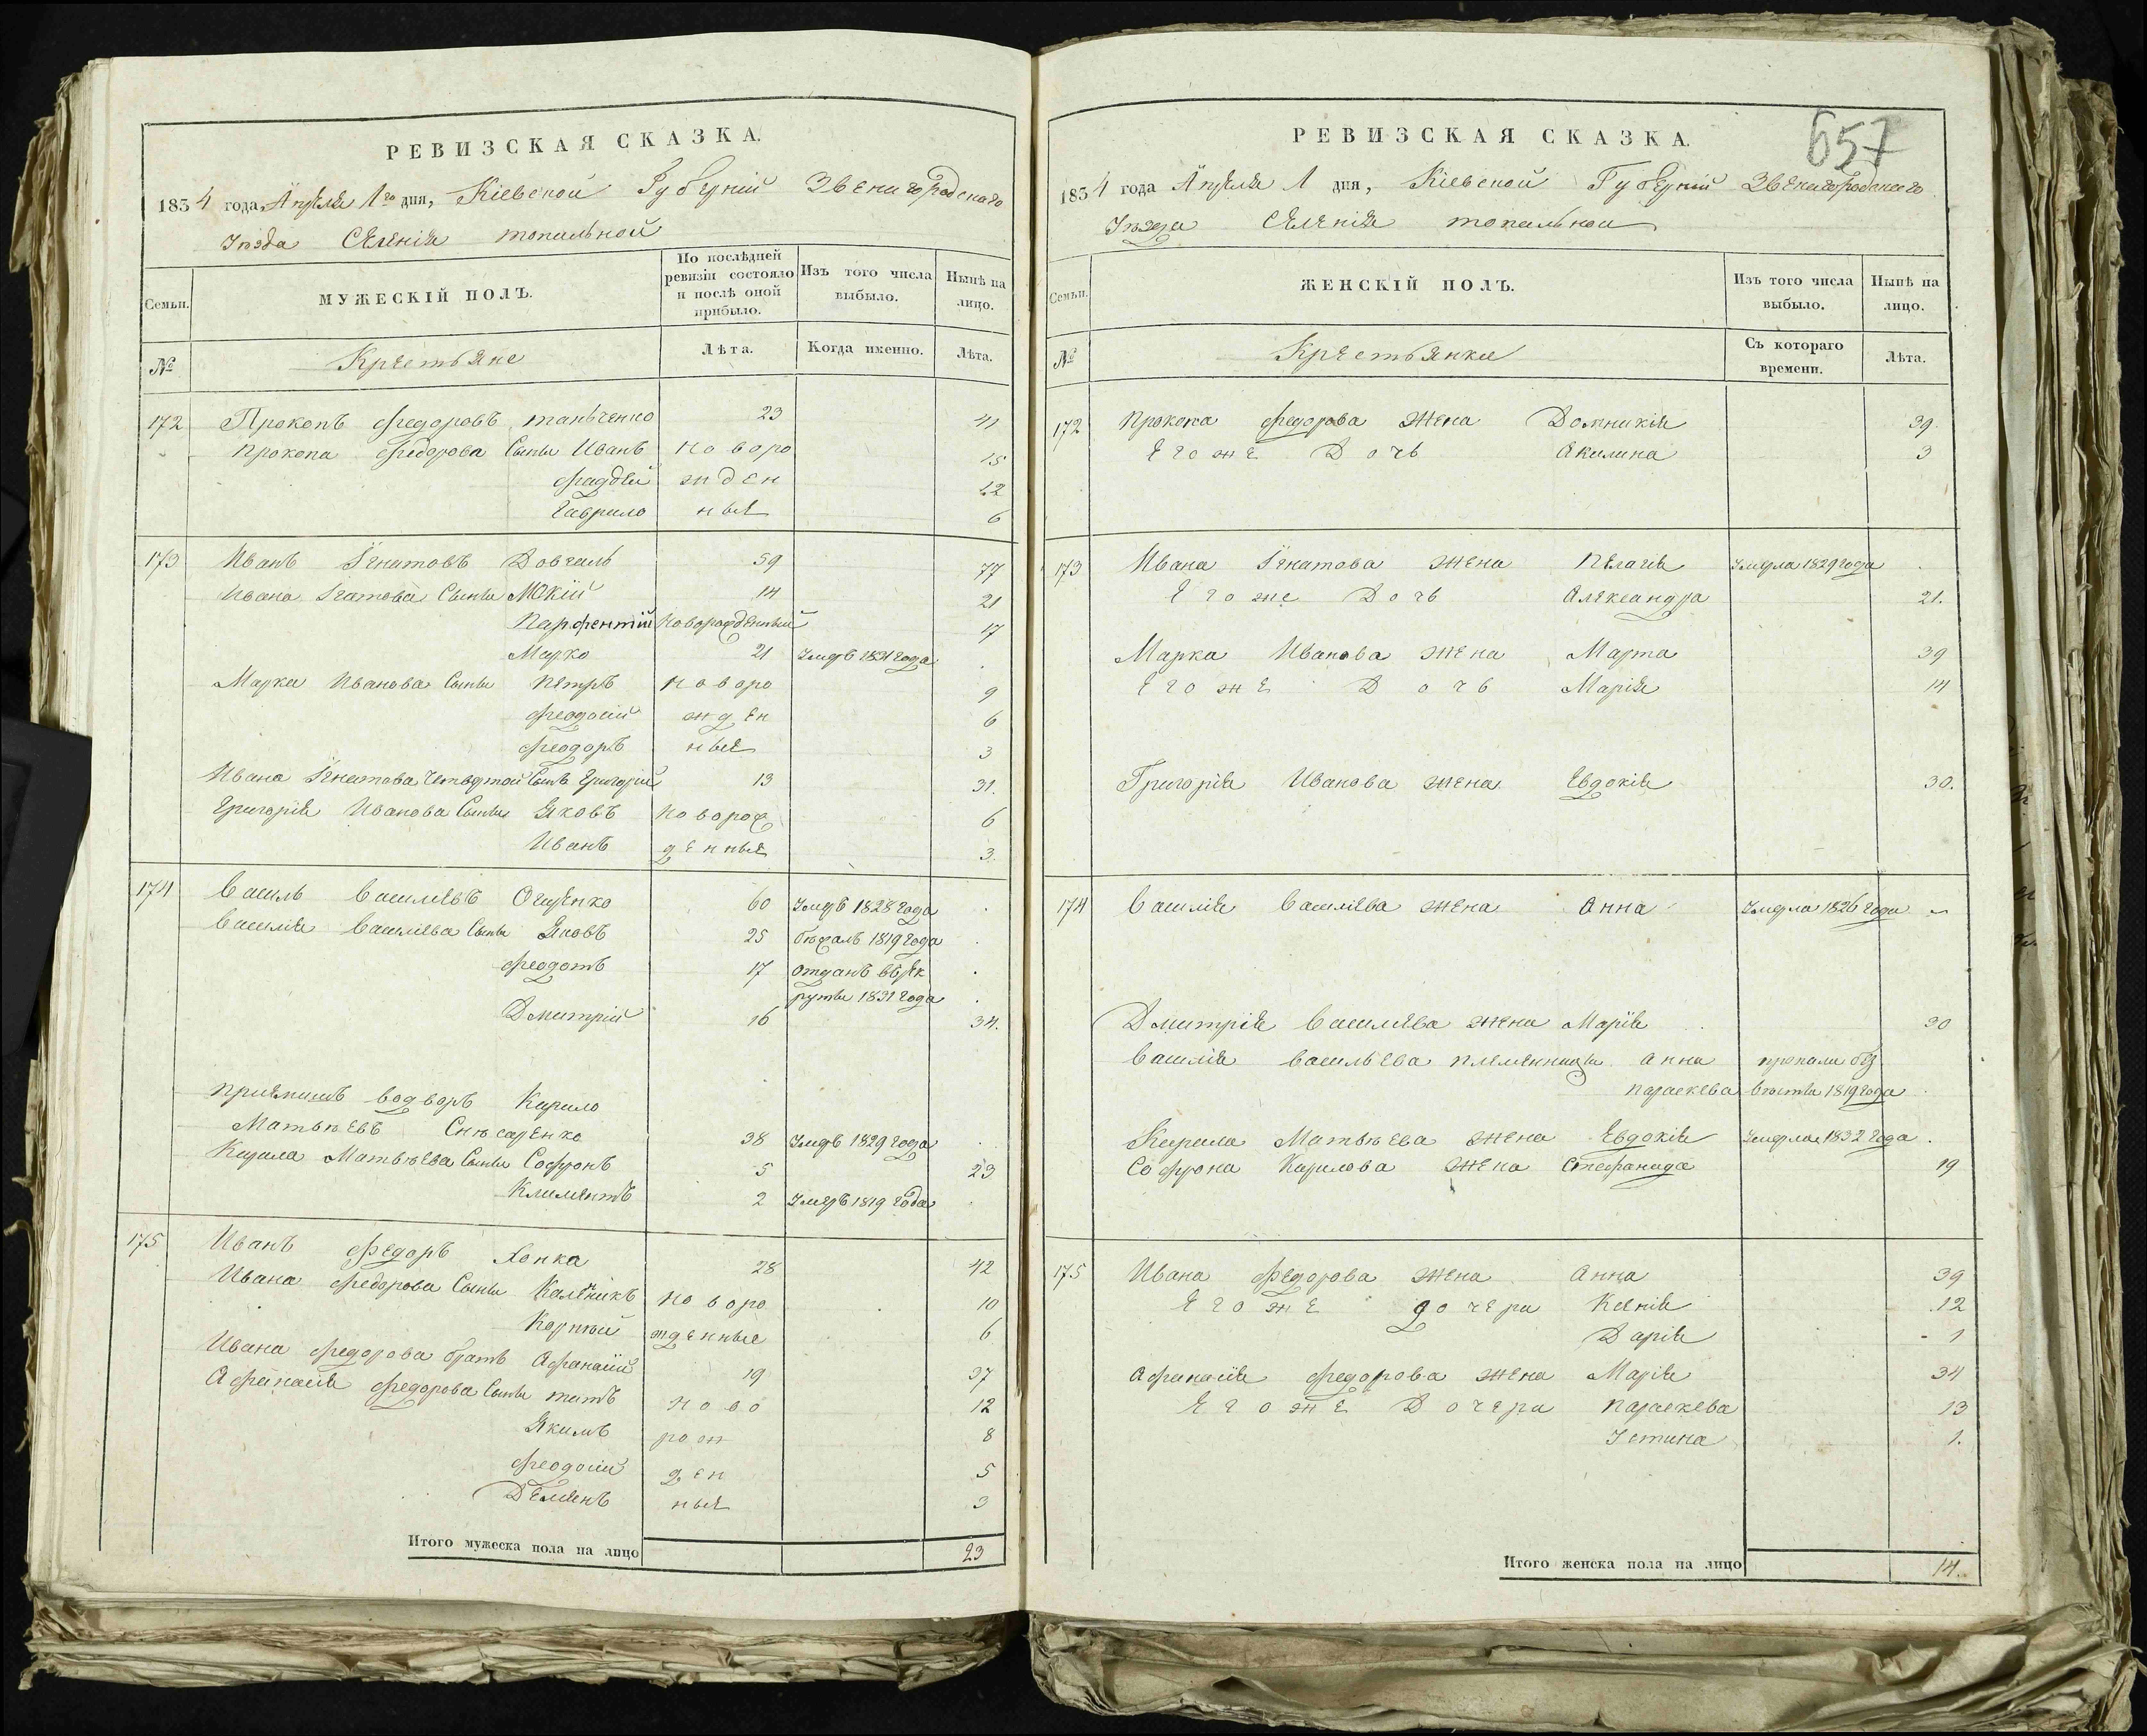 РЕВИЗСКАЯ СКАЗКА.
1834 года Апреля 1го дня, Кіевской Губерніи Звенигородскаго
Уѣзда Селенія топильной
Семьи. МУЖЕСКІЙ ПОЛЪ. По послѣдней ревизіи состояло и послѣ оной прибыло. Изъ того числа выбыло. Нынѣ на лицо.
№ Крестьяне Лѣта. Когда именно. Лѣта.
172 Прокопъ Федоровъ 23 41
Прокопа Федорова Сыны Иванъ новоро 15
Фадѣй жден 12
Гаврило ные 6
173 Иванъ Игнатовъ Довгаль 59 77
Ивана Игнатова Сыны Мокій 14 21
Парфентій новорожденный 17
Марко 21 Умеръ 1831 года .
Марка Иванова Сыны Петръ новоро 9
Феодосій жден 6
Феодоръ ные 3
Ивана Игнатова Четвертой Сынъ Григорій 13 31.
Григорія Иванова Сыны Яковъ новорож 6
Иванъ денные 3.
174 Василь Василіевъ 60 Умеръ 1828 года .
Василія Василіева Сыны Яковъ 25 бѣжалъ 1819 года .
Феодотъ 17 отданъ въ рек .
руты 1831 года .
Дмитрій 16 34.
Пріемышъ водворъ Кирило
Матвѣевъ Снѣсаренко 38 Умеръ 1829 года .
Кирила Матвѣева Сыны Софронъ 5 23
Климентъ 2 Умеръ 1819 года .
175 Иванъ Федоръ 28 42
Ивана Федорова Сыны Каленикъ новоро 10
Корнѣй жденные 6
Ивана Федорова братъ Афанасій 19 37
Афанасія Федорова Сыны титъ ново 12
Якимъ рож 8
Феодосій ден 5
Деменъ ные 3
Итого мужеска пола на лицо 23
657
РЕВИЗСКАЯ СКАЗКА.
1834 года Апреля 1 дня, Кіевской Губерніи Звенигородскаго
Уѣзда Селенія топильной
Семьи. ЖЕНСКІЙ ПОЛЪ. Изъ того числа выбыло. Нынѣ на лицо.
№ Крестьянки Съ котораго времени. Лѣта.
172 Прокопа Федорова жена Домникія 39.
Егоже Дочь Акилина 3
173 Ивана Игнатова жена Пелагія Умерла 1829 года .
Егоже Дочь Александра 21.
Марка Иванова жена Марта 39
Егоже Дочь Марія 14
Григорія Иванова жена Евдокія 30.
174 Василія Василіева жена Анна Умерла 1826 года
Дмитрія Василіева жена Марія 30
Василія Васильева племянницы Анна пропали без
Параскева вѣсты 1819 года .
Кирила Матвѣева жена Евдокія Умерла 1832 года .
Софрона Кирилова жена Стефанида 19
175 Ивана Федорова жена Анна 39
Егоже дочери Ксенія 12
Дарія 1
Афанасія Федорова жена Марія 34
Егоже Дочери Параскева 13
Устина 1.
Итого женска пола на лицо 14.